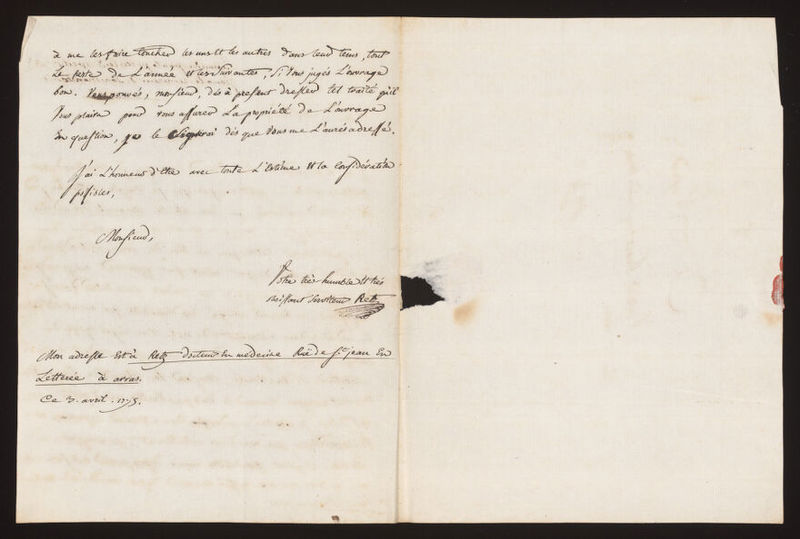 de me les faire toucher les uns et les autres dans leur tems, tout
le reste de L'année et les suivantes, si vous jugés L'ouvrage
bon. Vous pouvés, monsieur, dès à present dresser tel traité qu'il
Vous plaira pour vous assurer La propriété de L'ouvrage
En question, je le signerai dès que vous me L'aurés adressé.
J'ai L'honneur d'Etre avec toute L'Estime Et la Considération
possibles,
Monsieur,
Votre très humble Et très
obéissant serviteur Retz
Mon adresse Est à Retz docteur En medecine Rüe de St. jean En
Letterée à arras.
Ce 3. avril. 1775.